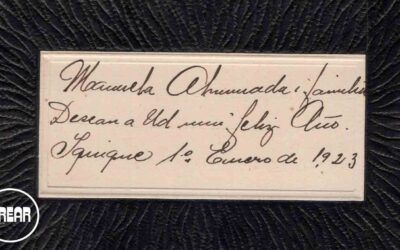 Manuela Ahumada i familia
Desean a Ud mui feliz Año.
Iquique 1º Enero de 1923
REAR